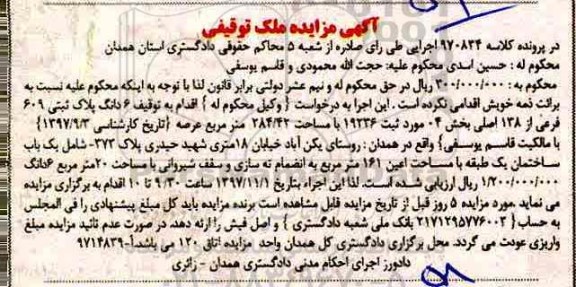 آگهی مزایده ملک توقیفی
در پرونده کلاسه ۹۷۰۸۳۴ اجرایی طی رای صادره از شعبه ۵ محاکم حقوقی دادگستری استان همدان
محکوم له : حسین اسدی محکوم علیه: حجت الله محمودی و قاسم یوسفی
محکوم به : ۳۰۰/۰۰۰/۰۰۰ ریال در حق محکوم له و نیم عشر دولتی برابر قانون لذا با توجه به اینکه محکوم علیه نسبت به
برائت ذمه خویش اقدامی نکرده است . این اجرا به درخواست { وکیل محکوم له } اقدام به توقیف ۶ دانگ پلاک ثبتی ۶۰۹
فرعی از ۱۳۸ اصلی بخش ۰۴ مورد ثبت ۱۹۲۳۶ با مساحت ۲۸۴/۴۲ متر مربع عرصه {تاریخ کارشناسی ۱۳۹۷/۹/۳}
با مالکیت قاسم یوسفی} واقع در همدان : روستای یکن آباد خیابان ۱۸متری شهید حیدری پلاک ۳۷۳- شامل یک باب
ساختمان یک طبقه با مساحت اعین ۱۶۱ متر مربع به انضمام ته سازی و سقف شیروانی با مساحت ۲۰متر مربع ۶دانگ
۱/۲۰۰/۰۰۰/۰۰۰ ریال ارزیابی شده است. لذا این اجراء بتاریخ ۱۳۹۷/۱۱/۱ ساعت ۹/۳۰ تا ۱۰ اقدام به برگزاری مزایده
می نماید .مورد مزایده ۵ روز قبل از تاریخ مزایده قابل مشاهده است برنده مزایده باید کل مبلغ پیشنهادی را فی المجلس
به حساب { ۲۱۷۱۲۹۵۷۷۶۰۰۲ بانک ملی شعبه دادگستری } و اصل فیش را ارئه دهد. در صورت عدم تائید مزایده مبلغ
واریزی عودت می گردد. محل برگزاری دادگستری کل همدان واحد مزایده اتاق ۱۲۰ می باشد.آ-۹۷۱۴۸۳۹
دادورز اجرای احکام مدنی دادگستری همدان - زائری